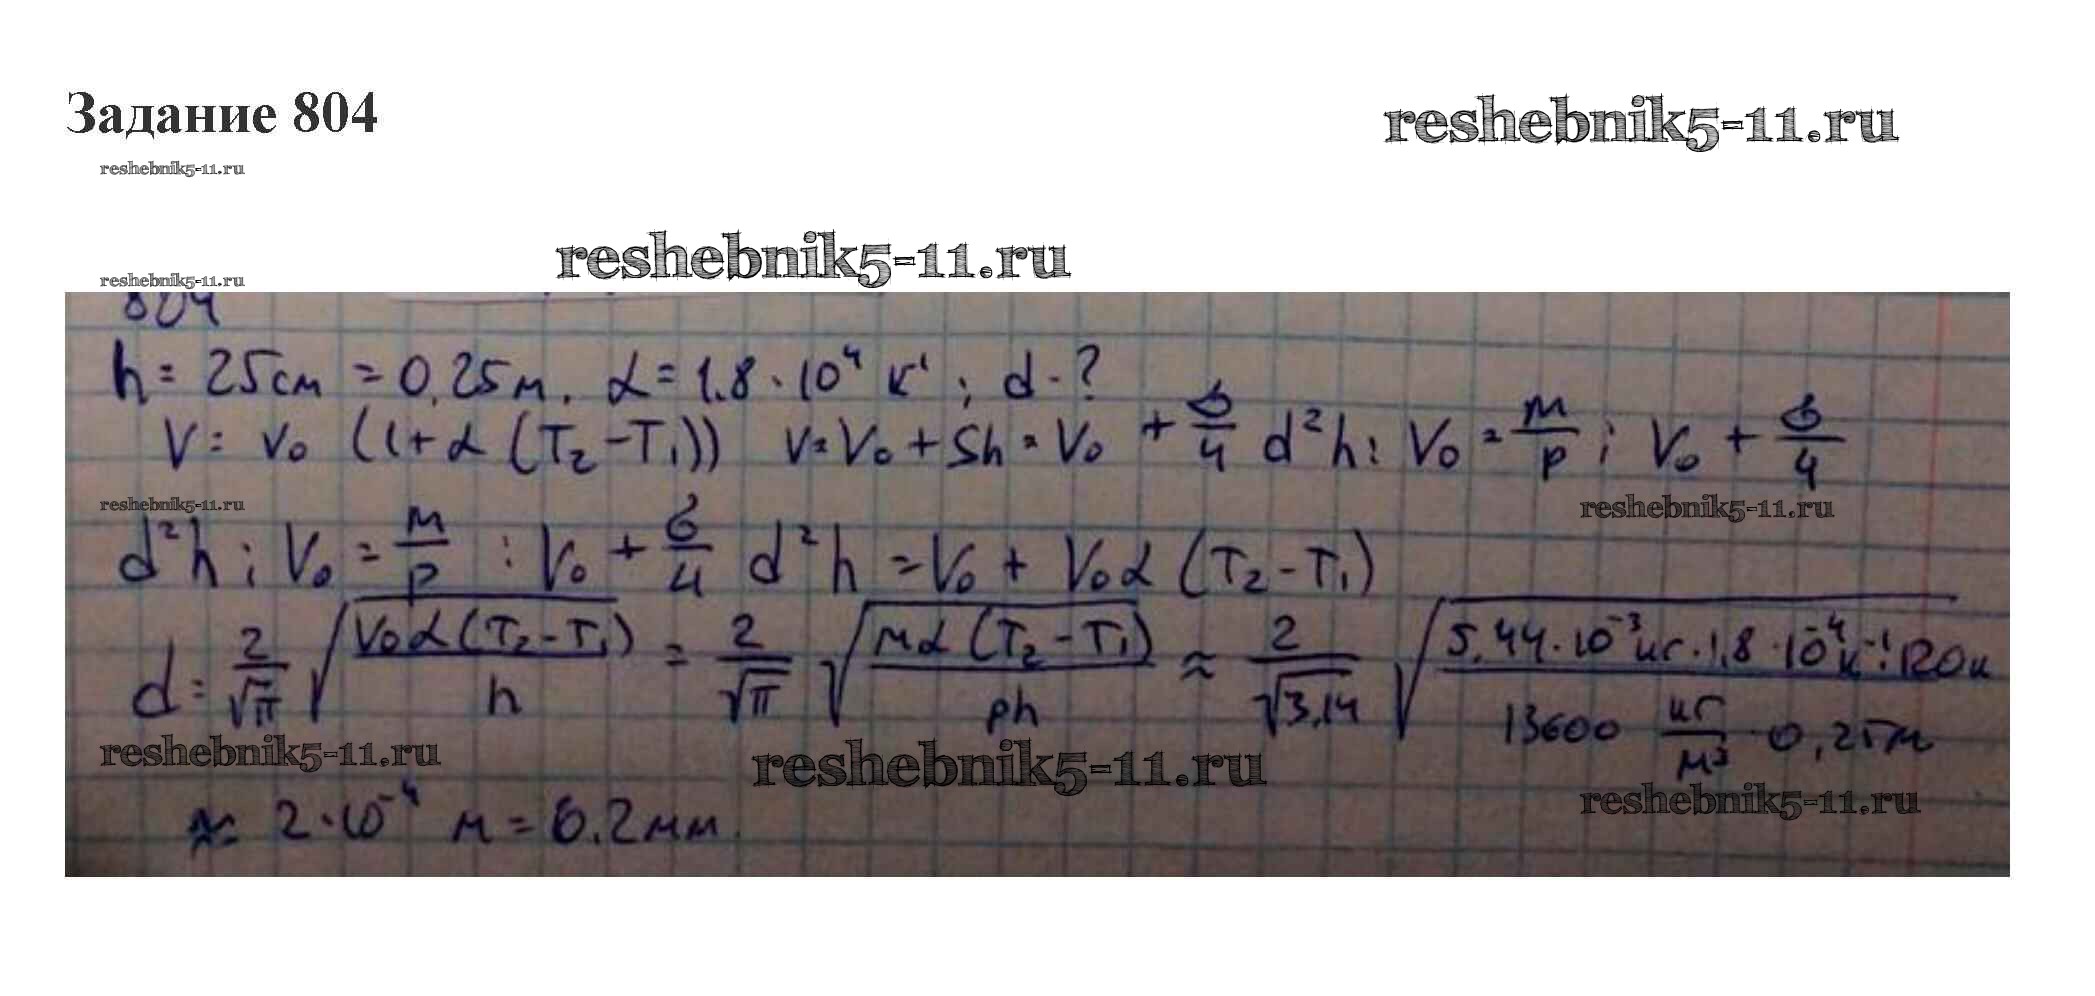 Задание 804
reshebnik5-11.ru
reshebnik5-11.ru
reshebnik5-11.ru
reshebnik5-11.ru
804
h = 25см = 0,25м, α = 1.8 · 10⁴ К¹ ; d - ?
V = V₀ (1+ α (T₂ - T₁)) V = V₀ + Sh = V₀ + б/4 d²h ; V₀ = м/р ; V₀ + б/4
reshebnik5-11.ru
reshebnik5-11.ru
d²h ; V₀ = м/р ; V₀ + б/4 d²h = V₀ + V₀α (T₂ - T₁)
d = 2/√π √(V₀α(T₂ - T₁)/h) = 2/√π √(мα(T₂ - T₁)/ρh) ≈ 2/√3,14 √(5,44·10⁻³кг·1,8·10⁻⁴к⁻¹·120к/13600 кг/м³ · 0,25м)
reshebnik5-11.ru
reshebnik5-11.ru
reshebnik5-11.ru
≈ 2·10⁻⁴ м = 0.2мм.